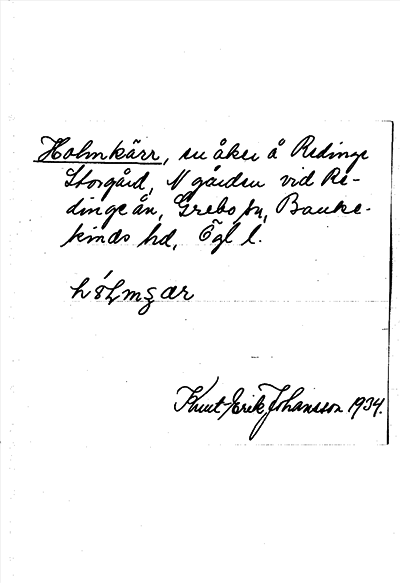 Holmkärr, en åker å Redinge
Storgård, N gården vid Re-
dinge ån, Grebo sn, Banke-
kinds hd, Ögl l.
Knut-Erik Johansson 1934.